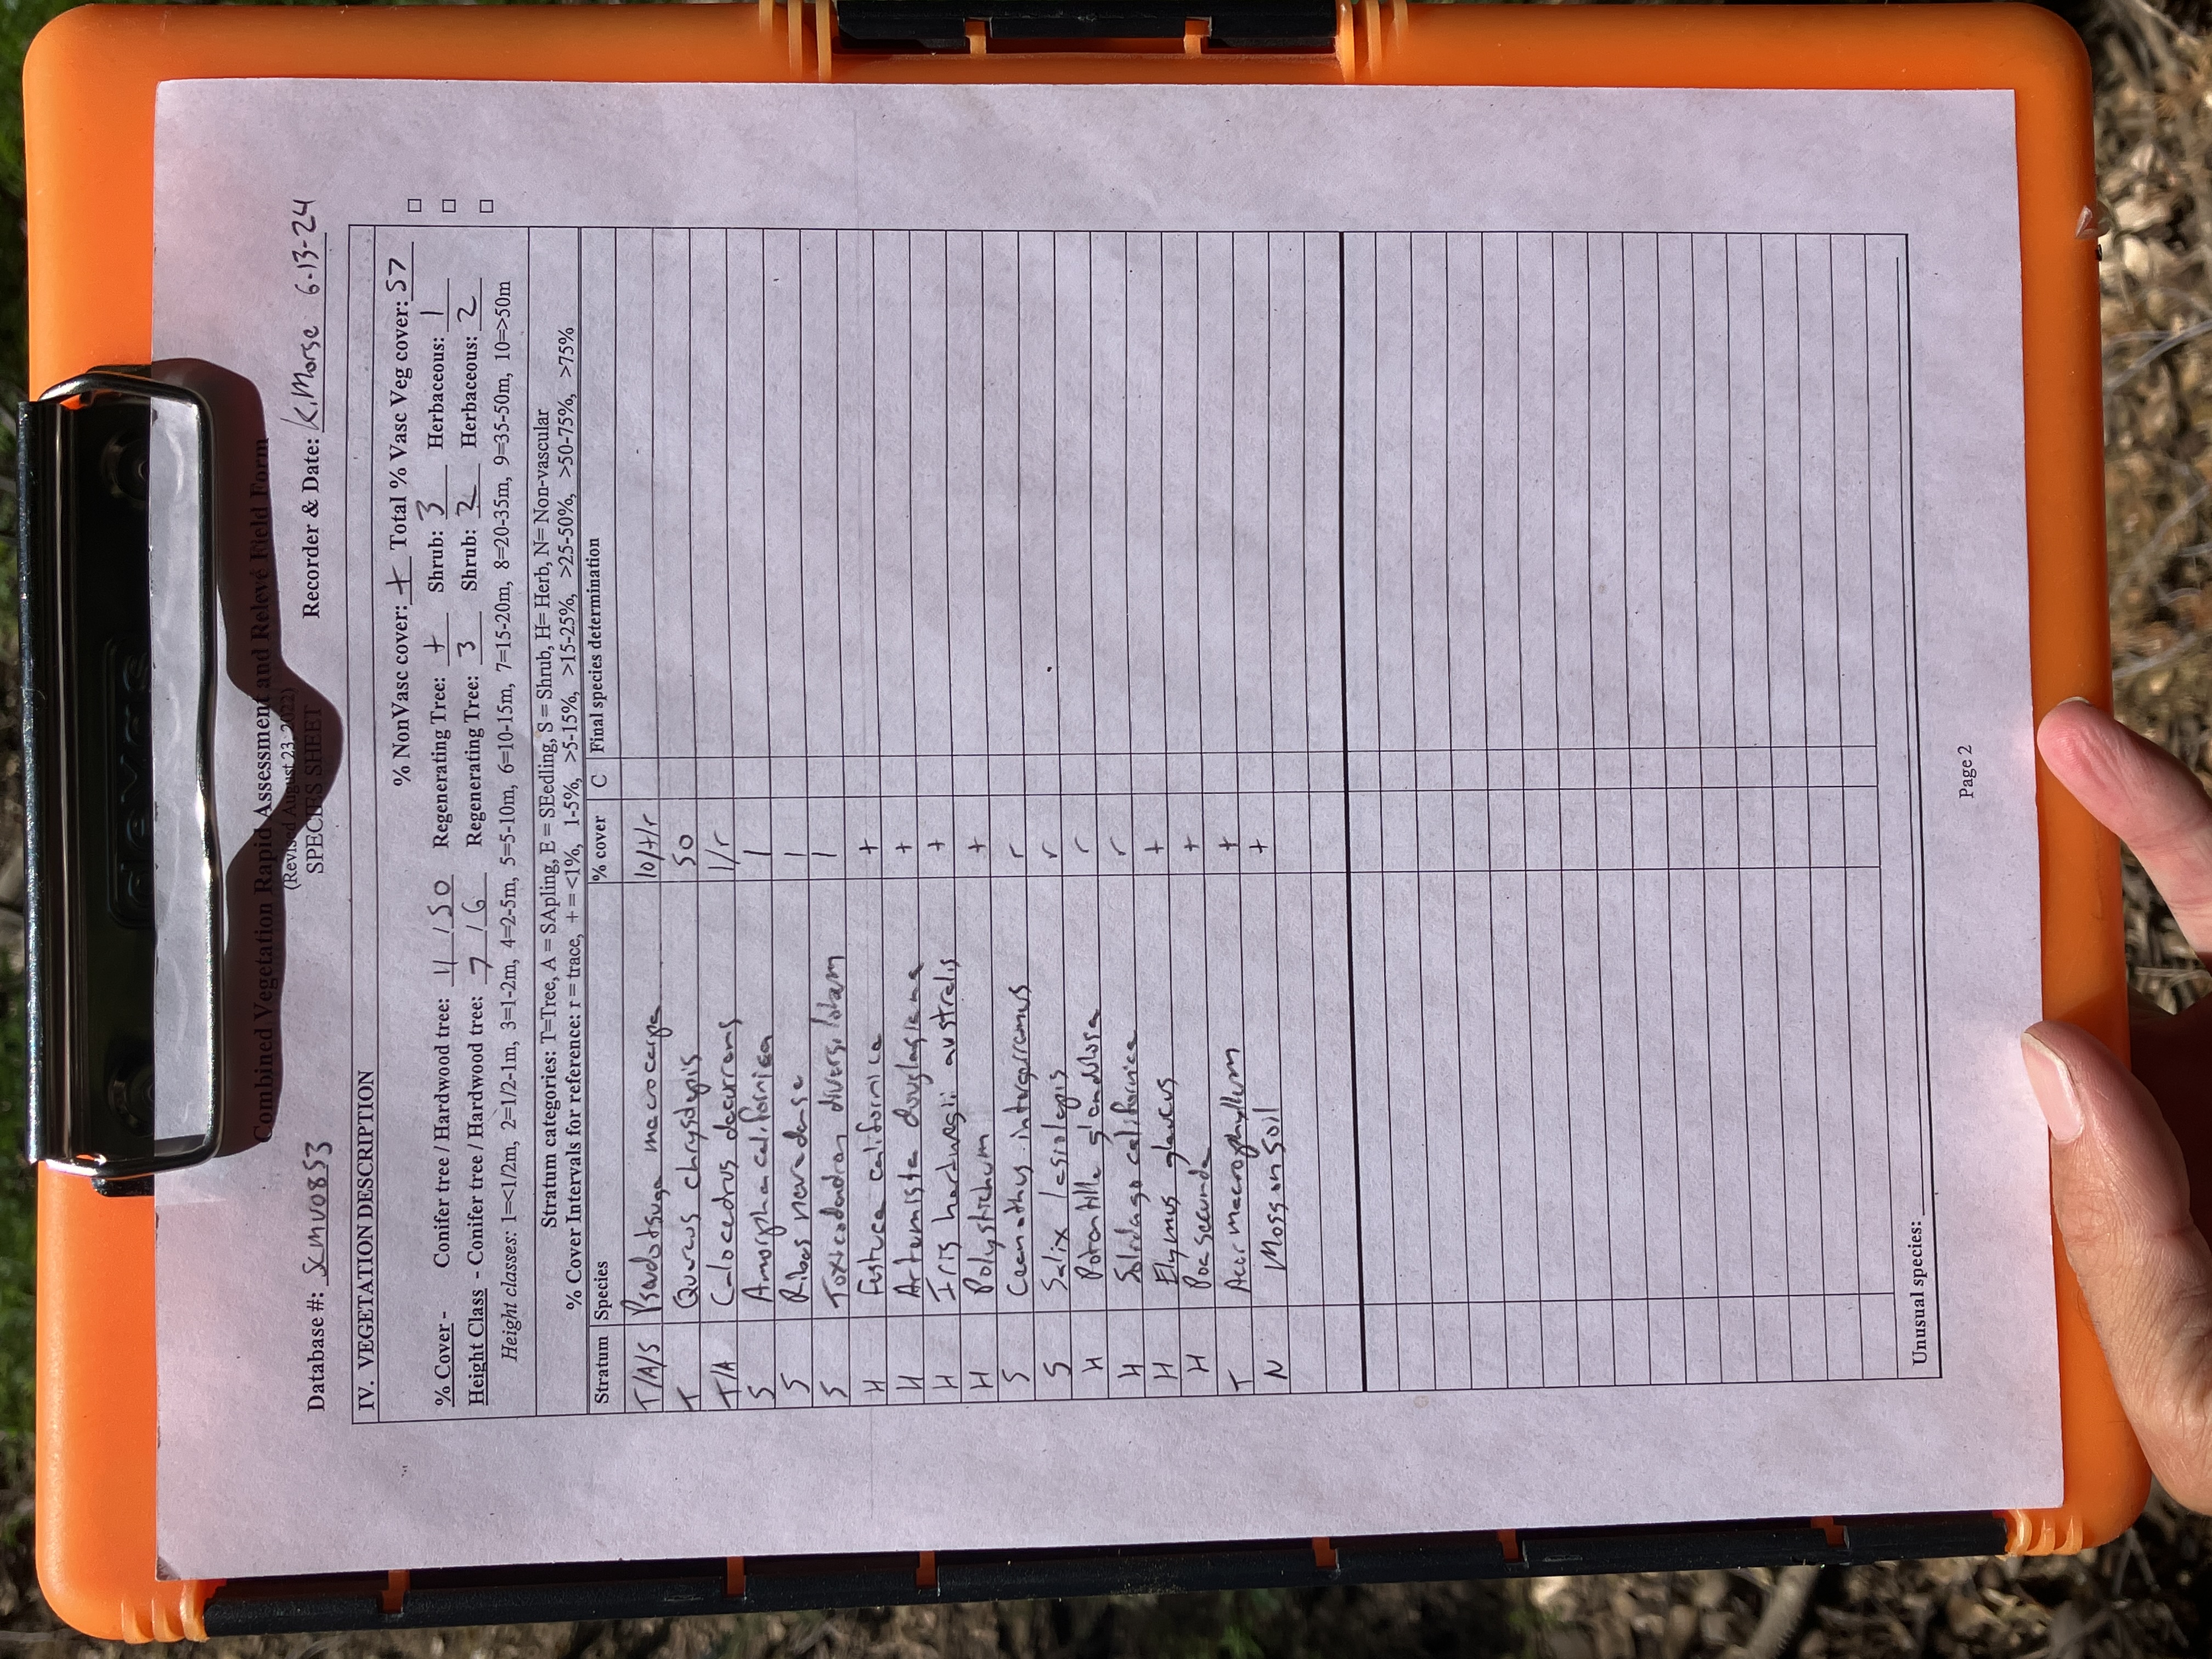 devas
Combined Vegetation Rapid Assessment and Relevé Field Form
(Revised August 23, 2022)
SPECIES SHEET
Database #: SCMV0853 Recorder & Date: K. Morse 6-13-24
IV. VEGETATION DESCRIPTION
% NonVasc cover: + Total % Vasc Veg cover: 57
% Cover - Conifer tree / Hardwood tree: 11 / 50 Regenerating Tree: + Shrub: 3 Herbaceous: 1
Height Class - Conifer tree / Hardwood tree: 7 / 6 Regenerating Tree: 3 Shrub: 2 Herbaceous: 2
Height classes: 1=<1/2m, 2=1/2-1m, 3=1-2m, 4=2-5m, 5=5-10m, 6=10-15m, 7=15-20m, 8=20-35m, 9=35-50m, 10=>50m
Stratum categories: T=Tree, A = SApling, E = SEedling, S = Shrub, H= Herb, N= Non-vascular
% Cover Intervals for reference: r = trace, + = <1%, 1-5%, >5-15%, >15-25%, >25-50%, >50-75%, >75%
Stratum Species % cover C Final species determination
T/A/S Pseudotsuga macrocarpa 10/+/r
T Quercus chrysolepis 50
T/A Calocedrus decurrens 1/r
S Amorpha californica 1
S Ribes nevadense 1
S Toxicodendron diversilobum 1
H Festuca californica +
H Artemisia douglasiana +
H Iris hartwegii australis +
H Polystichum +
S Ceanothus integerrimus r
S Salix lasiolepis r
H Potentilla glandulosa r
H Solidago californica r
H Elymus glaucus +
H Poa secunda +
T Acer macrophyllum +
N Moss on soil +
Unusual species:
Page 2